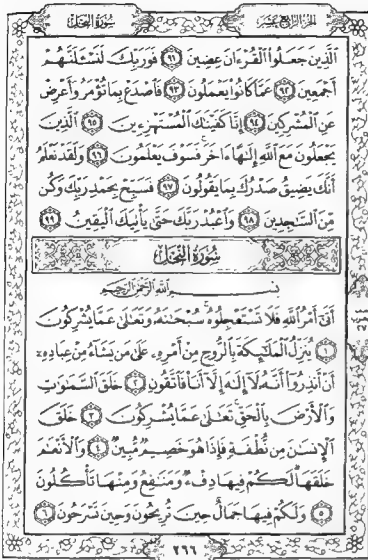 سورة النحل
الجزء الرابع عشر
الَّذِينَ جَعَلُوا الْقُرْءَانَ عِضِينَ ٩١ فَوَرَبِّكَ لَنَسْـَٔلَنَّهُمْ
أَجْمَعِينَ ٩٢ عَمَّا كَانُوا يَعْمَلُونَ ٩٣ فَاصْدَعْ بِمَا تُؤْمَرُ وَأَعْرِضْ
عَنِ الْمُشْرِكِينَ ٩٤ إِنَّا كَفَيْنَاكَ الْمُسْتَهْزِءِينَ ٩٥ الَّذِينَ
يَجْعَلُونَ مَعَ اللَّهِ إِلَٰهًا ءَاخَرَ فَسَوْفَ يَعْلَمُونَ ٩٦ وَلَقَدْ نَعْلَمُ
أَنَّكَ يَضِيقُ صَدْرُكَ بِمَا يَقُولُونَ ٩٧ فَسَبِّحْ بِحَمْدِ رَبِّكَ وَكُن
مِّنَ السَّاجِدِينَ ٩٨ وَاعْبُدْ رَبَّكَ حَتَّىٰ يَأْتِيَكَ الْيَقِينُ ٩٩
سُورَةُ النَّحْلِ
بِسْمِ اللَّهِ الرَّحْمَٰنِ الرَّحِيمِ
أَتَىٰ أَمْرُ اللَّهِ فَلَا تَسْتَعْجِلُوهُ سُبْحَٰنَهُ وَتَعَٰلَىٰ عَمَّا يُشْرِكُونَ
١ يُنَزِّلُ الْمَلَٰٓئِكَةَ بِالرُّوحِ مِنْ أَمْرِهِ عَلَىٰ مَن يَشَآءُ مِنْ عِبَادِهِ
أَنْ أَنذِرُوا أَنَّهُ لَآ إِلَٰهَ إِلَّآ أَنَا فَاتَّقُونِ ٢ خَلَقَ السَّمَٰوَٰتِ
وَالْأَرْضَ بِالْحَقِّ تَعَٰلَىٰ عَمَّا يُشْرِكُونَ ٣ خَلَقَ
الْإِنسَٰنَ مِن نُّطْفَةٍ فَإِذَا هُوَ خَصِيمٌ مُّبِينٌ ٤ وَالْأَنْعَٰمَ
خَلَقَهَا لَكُمْ فِيهَا دِفْءٌ وَمَنَٰفِعُ وَمِنْهَا تَأْكُلُونَ
٥ وَلَكُمْ فِيهَا جَمَالٌ حِينَ تُرِيحُونَ وَحِينَ تَسْرَحُونَ ٦
٢٦٦